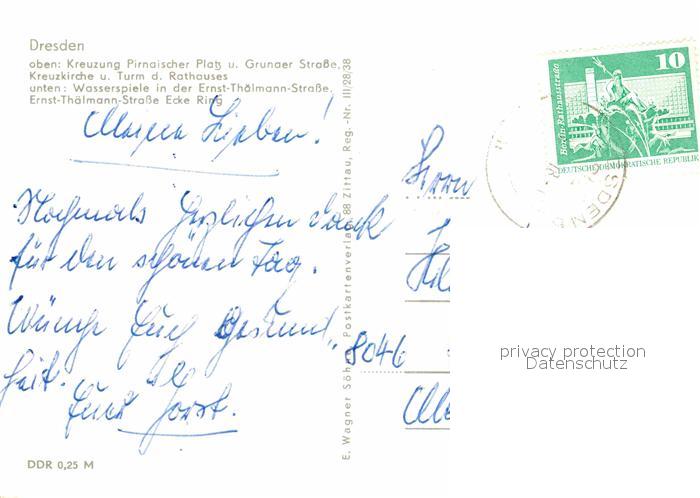 Dresden
oben: Kreuzung Pirnaischer Platz u. Grunaer Straße,
Kreuzkirche u. Turm d. Rathauses
unten: Wasserspiele in der Ernst-Thälmann-Straße,
Ernst-Thälmann-Straße Ecke Ring
Meine Lieben!
Nochmals herzlichen Dank
für den schönen Tag.
Wünsche Euch Gesund-
heit.
Euer Horst.
DDR 0,25 M
E. Wagner Söh Postkartenverla 88 Zittau, Reg.-Nr. III/28/38
Herrn
8046
10
Berlin-Rathausstraße
DEUTSCHE DEMOKRATISCHE REPUBLIK
SDEN
privacy protection
Datenschutz